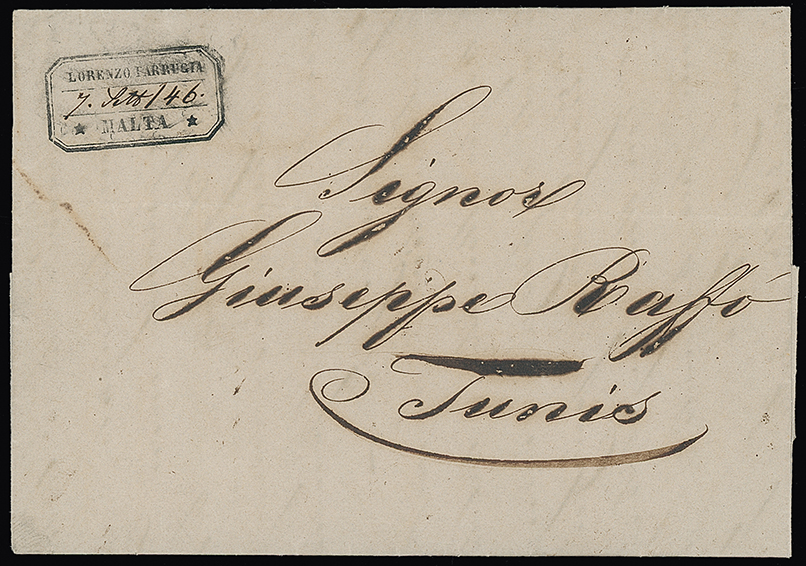 LORENZO FARRUGIA
7. Ott/46.
★ MALTA ★
Signor
Giuseppe Raffo
Tunis